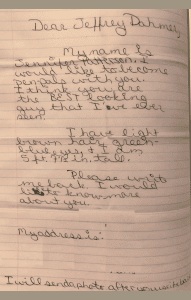 Dear Jeffrey Dahmer,
My name is
Jennifer I
would like to become
penpals with you.
I think you are
the BEST looking
guy that I've ever
seen.
I have light
brown hair, green-
blue eyes, + I am
5 ft. in. tall.
Please write
me back. I would
to know more
about you.
My address is:
I will send a photo after you write